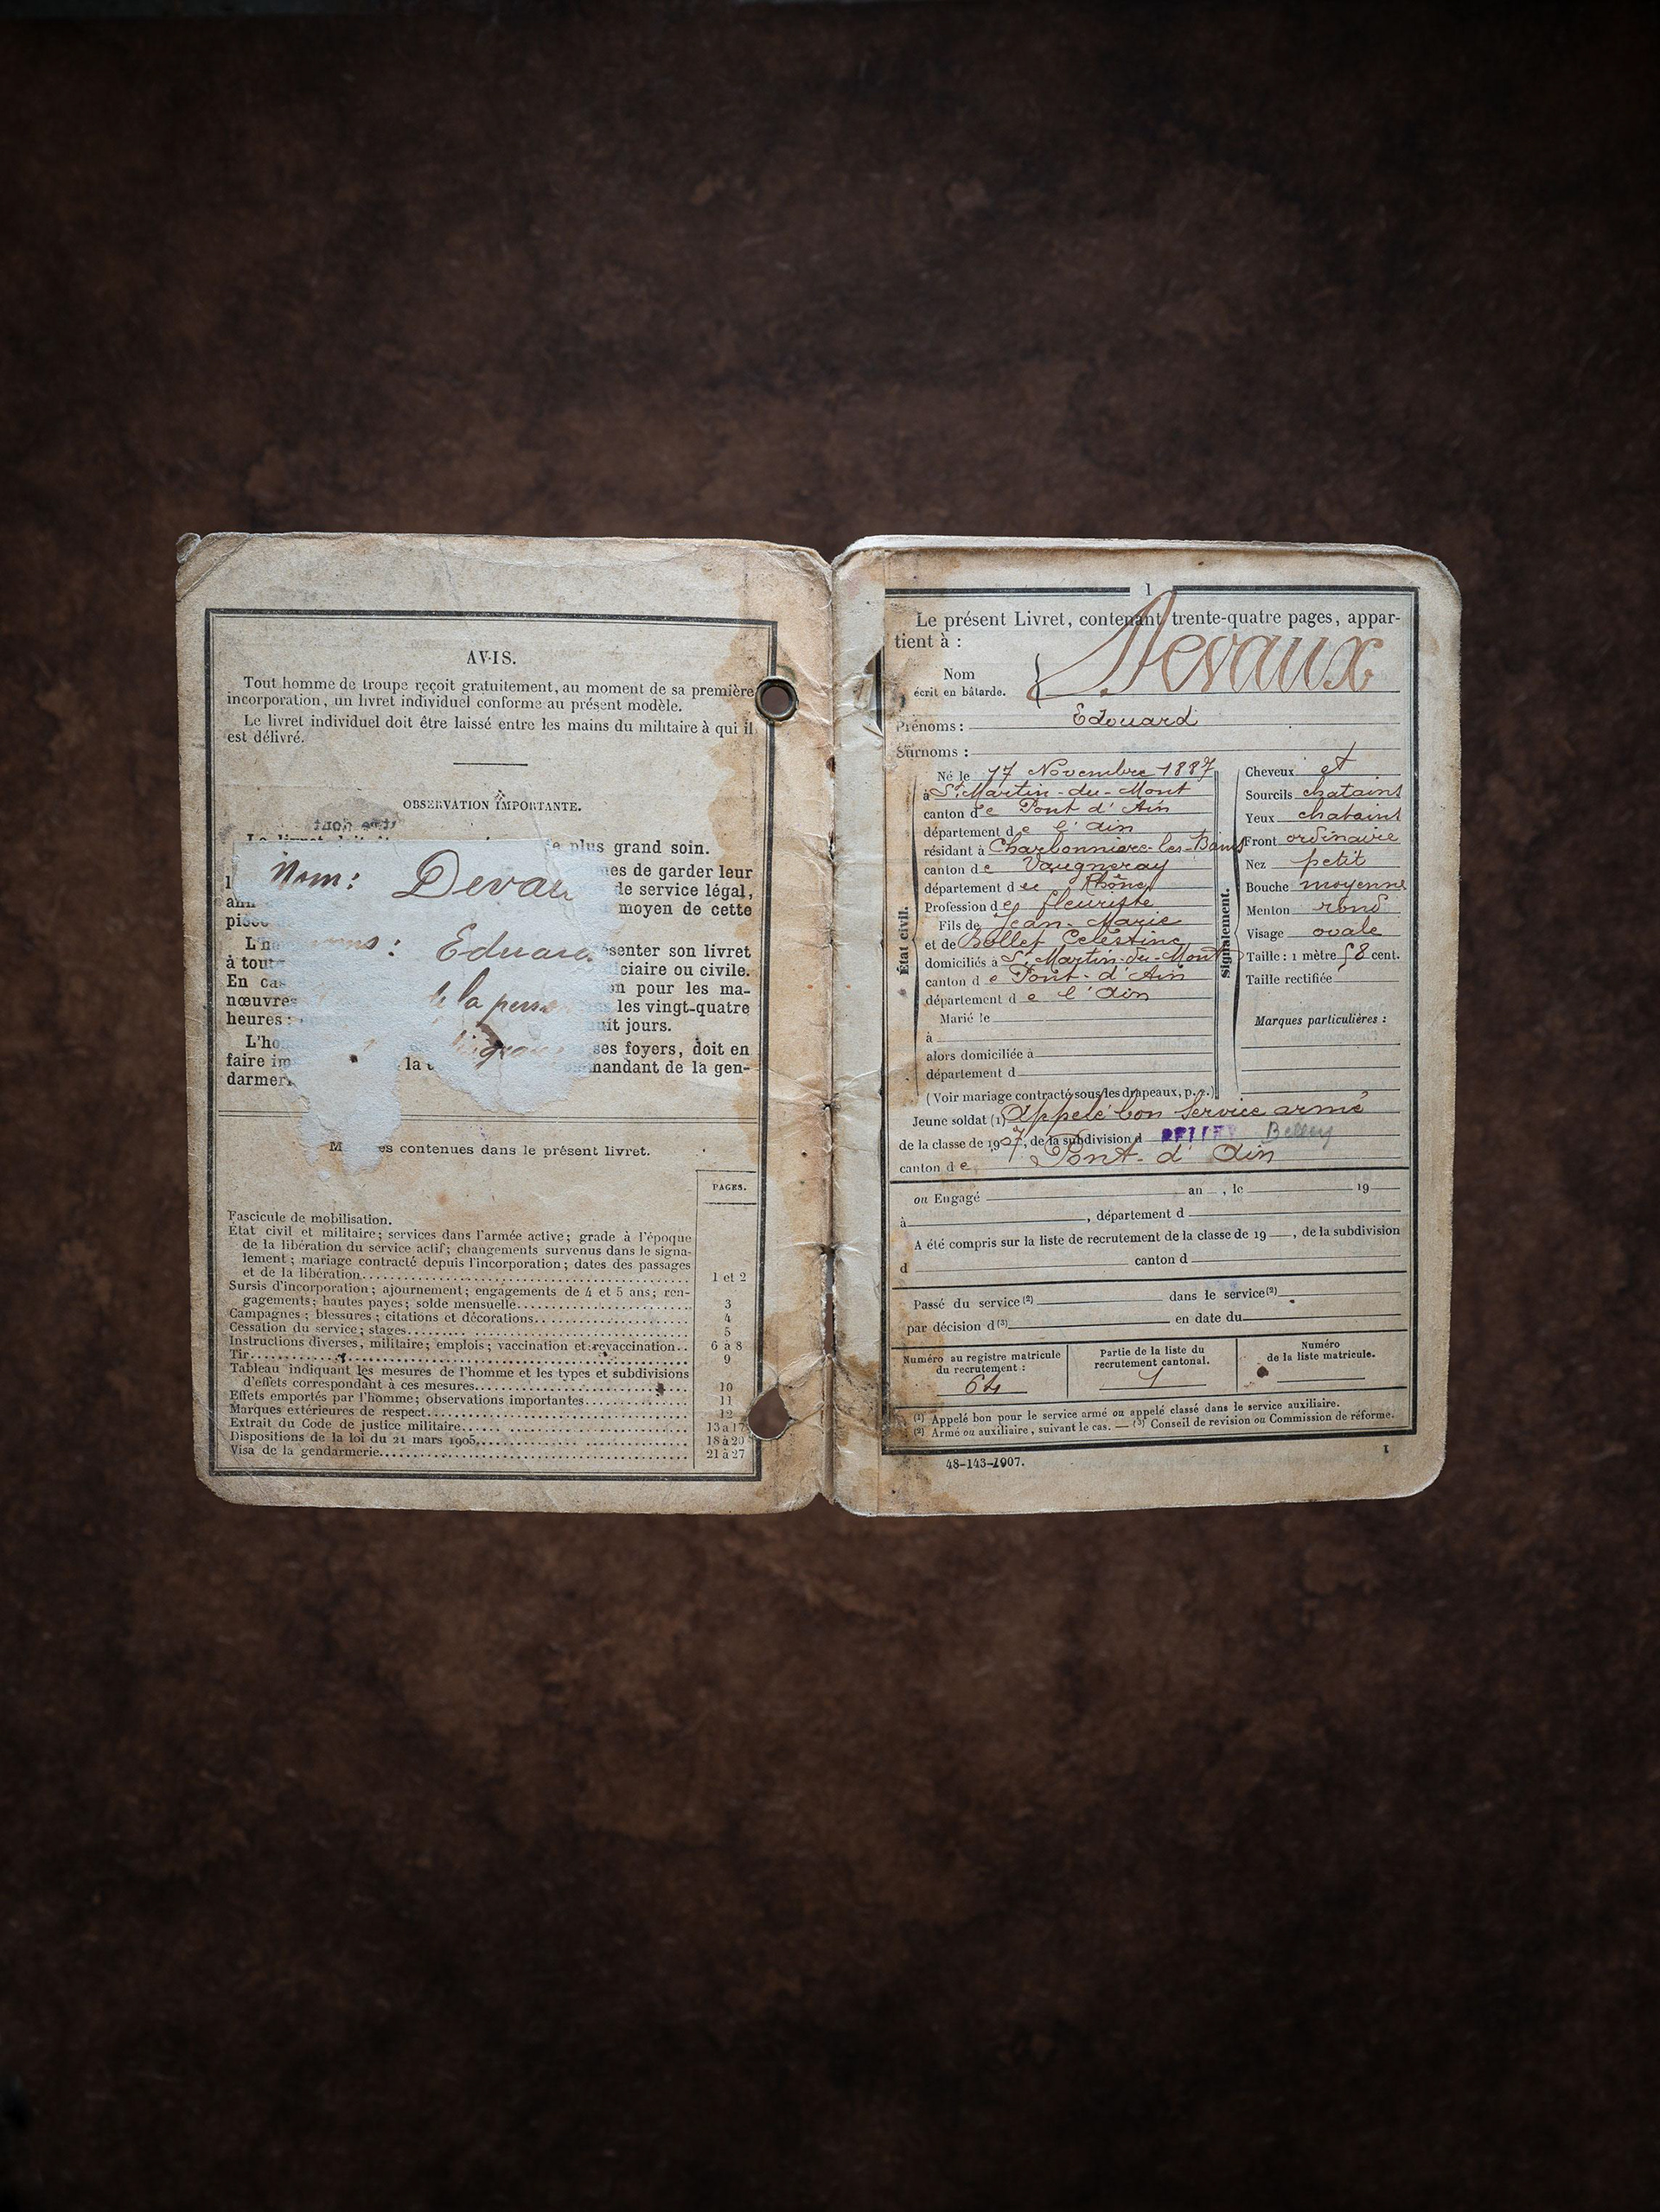 AVIS.
Tout homme de troupe reçoit gratuitement, au moment de sa première
incorporation, un livret individuel conforme au présent modèle.
Le livret individuel doit être laissé entre les mains du militaire à qui il
est délivré.
OBSERVATION IMPORTANTE.
plus grand soin.
Nom: Devau
de garder leur
de service légal,
moyen de cette
Edouard
son livret
à tout
ou civile.
En
pour les ma-
nœuvres
de la
les vingt-quatre
heures :
jours.
L'ho
ses foyers, doit en
faire
la
de la gen-
darmer
contenues dans le présent livret.
PAGES.
Fascicule de mobilisation.
État civil et militaire; services dans l'armée active; grade à l'époque
de la libération du service actif; changements survenus dans le signa-
lement; mariage contracté depuis l'incorporation; dates des passages
et de la libération 1 et 2
Sursis d'incorporation; ajournement; engagements de 4 et 5 ans; ren-
gagements; hautes payes; solde mensuelle 3
Campagnes; blessures; citations et décorations 4
Cessation du service; stages 5
Instructions diverses, militaire; emplois; vaccination et revaccination.. 6 à 8
Tir 9
Tableau indiquant les mesures de l'homme et les types et subdivisions
d'effets correspondant à ces mesures 10
Effets emportés par l'homme; observations importantes 11
Marques extérieures de respect 12
Extrait du Code de justice militaire 13 à 17
Dispositions de la loi du 21 mars 1905 18 à 20
Visa de la gendarmerie 21 à 27
1
Le présent Livret, contenant trente-quatre pages, appar-
tient à :
Nom Devaux
écrit en bâtarde.
Prénoms : Edouard
Surnoms :
État civil.
Né le 17 Novembre 1887
à St Martin-du-Mont
canton de Pont d'Ain
département de l'Ain
résidant à Charbonnière-les-Bains
canton de Vaugneray
département du Rhône
Profession de fleuriste
Fils de Jean-Marie
et de Bollet Célestine
domiciliés à St Martin-du-Mont
canton de Pont-d'Ain
département de l'Ain
Marié le
à
alors domiciliée à
département d
(Voir mariage contracté sous les drapeaux, p. 2.)
Signalement.
Cheveux et
Sourcils chatains
Yeux chatains
Front ordinaire
Nez petit
Bouche moyenne
Menton rond
Visage ovale
Taille : 1 mètre 58 cent.
Taille rectifiée
Marques particulières :
Jeune soldat (1) Appelé bon service armé
de la classe de 1907, de la subdivision d BELLEY Belley
canton de Pont-d'Ain
ou Engagé an , le 19
à , département d
A été compris sur la liste de recrutement de la classe de 19 , de la subdivision
d canton d
Passé du service (2) dans le service (2)
par décision d (3) en date du
Numéro au registre matricule
du recrutement :
64
Partie de la liste du
recrutement cantonal.
1
Numéro
de la liste matricule.
(1) Appelé bon pour le service armé ou appelé classé dans le service auxiliaire.
(2) Armé ou auxiliaire, suivant le cas. — (3) Conseil de revision ou Commission de réforme.
48-143-1907.
1